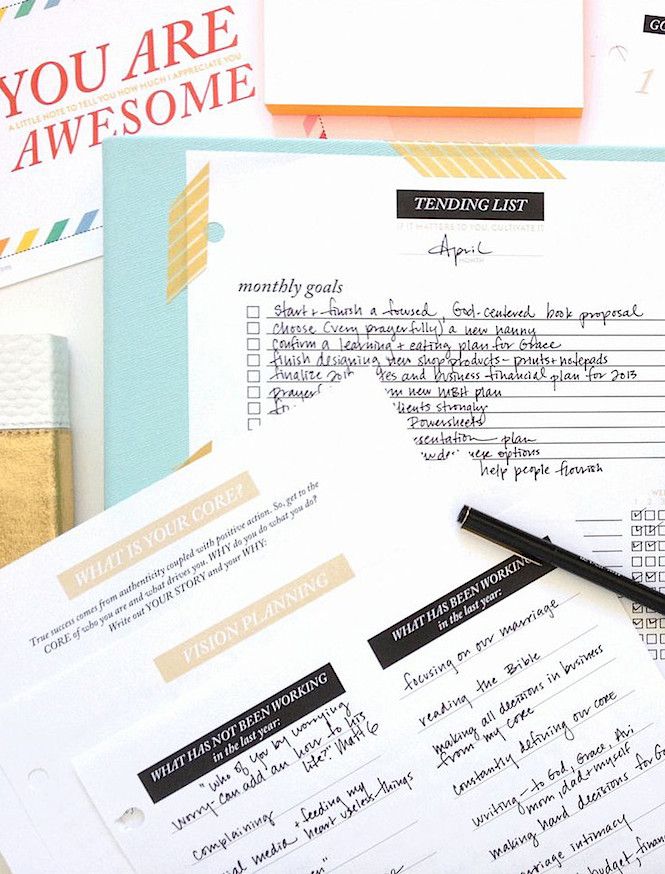 YOU ARE
A LITTLE NOTE TO TELL YOU HOW MUCH I APPRECIATE YOU
AWESOME
GO
1
TENDING LIST
IF IT MATTERS TO YOU, CULTIVATE IT
April
MONTH
monthly goals
Start + finish a focused, God-centered book proposal
choose (very prayerfully) a new nanny
Confirm a learning + eating plan for Grace
finish designing new shop products - prints + notepads
finalize 201 es and business financial plan for 2013
prayer m new MBH plan
lients strongly
Powersheets
esentation plan
options
help people flourish
WHAT IS YOUR CORE?
True success comes from authenticity coupled with positive action. So, get to the
CORE of who you are and what drives you. WHY do you do what you do?
Write out YOUR STORY and your WHY:
VISION PLANNING
WHAT HAS BEEN WORKING
in the last year:
focusing on our marriage
reading the Bible
making all decisions in business
from my core
constantly defining our CORE
writing - to God, Grace, Ari
mom, dad + myself
making hard decisions for G
rriage intimacy
budget, finan
WHAT HAS NOT BEEN WORKING
in the last year:
"Who of you by worrying
worry - can add an hour to his
life?" Matt 6
complaining
+ feeding my
ial media heart useless things